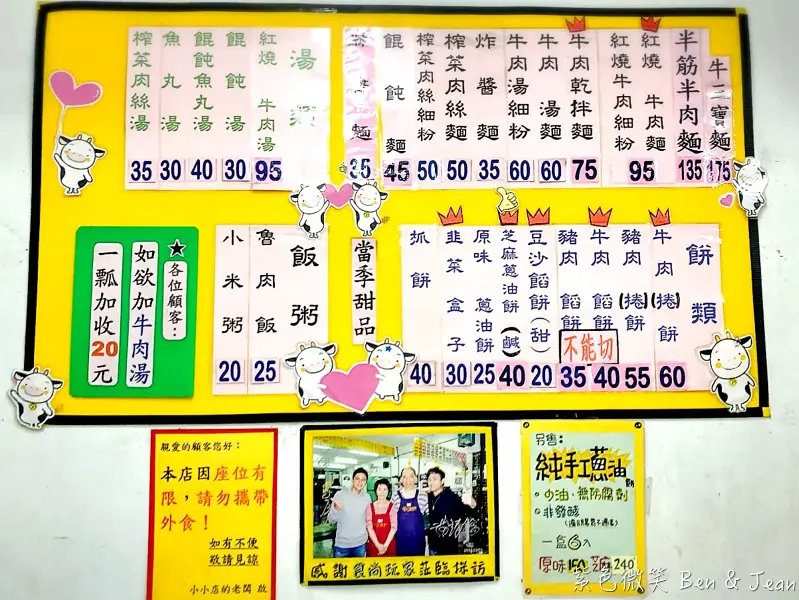 牛三寶麵 175
半筋半肉麵 135
紅燒牛肉麵
紅燒牛肉細粉 95
牛肉乾拌麵 75
牛肉湯麵 60
牛肉湯細粉 60
炸醬麵 35
榨菜肉絲麵 50
榨菜肉絲細粉 50
餛飩麵 45
麵 35
湯類
紅燒牛肉湯 95
餛飩湯 30
餛飩魚丸湯 40
魚丸湯 30
榨菜肉絲湯 35
餅類
牛肉(捲)餅 60
豬肉(捲)餅 55
牛肉餡餅 40
豬肉餡餅 35
不能切
豆沙餡餅(甜) 20
芝麻蔥油餅(鹹) 40
原味蔥油餅 25
韭菜盒子 30
抓餅 40
當季甜品
飯粥
魯肉飯 25
小米粥 20
★各位顧客：
如欲加牛肉湯
一瓢加收20元
親愛的顧客您好：
本店因座位有
限，請勿攜帶
外食！
如有不便
敬請見諒
小小店的老闆 啟
感謝食尚玩家蒞臨採訪
另售：
純手工蔥油餅
少油．無防腐劑
非發酵
一盒⑥入
原味150 芝麻240
紫色微笑 Ben & Jean